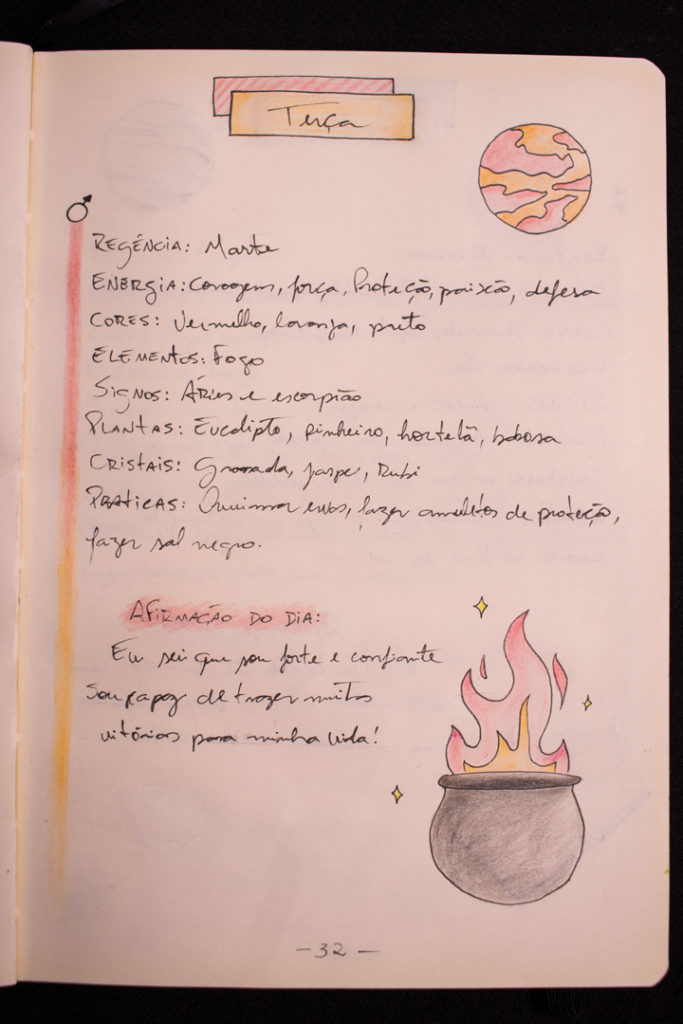 Terça
REGÊNCIA: Marte
ENERGIA: Coragem, força, Proteção, paixão, defesa
CORES: Vermelho, laranja, preto
ELEMENTOS: Fogo
SIGNOS: Áries e escorpião
PLANTAS: Eucalipto, pinheiro, hortelã, babosa
CRISTAIS: Granada, jaspe, Rubi
PRATICAS: Queimar ervas, fazer amuletos de proteção,
fazer sal negro.
AFIRMAÇÃO DO DIA:
Eu sei que sou forte e confiante
Sou capaz de trazer muitas
vitórias para minha vida!
- 32 -